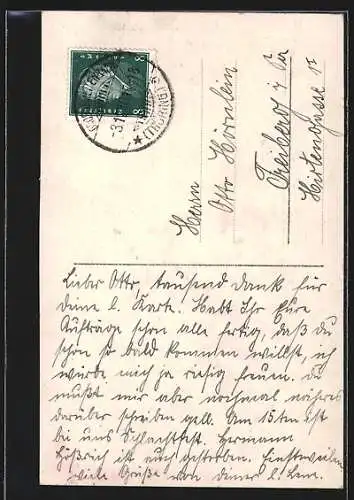 Herrn
Otto Hörnlein
Freiberg i. Sa
Hirtengasse
8 8
(THÜRING.)
Lieber Otto, tausend Dank für
deine l. Karte. Habt Ihr Eure
Aufträge schon alle fertig, daß du
schon so bald kommen willst, ich
würde mich ja riesig freuen. Du
mußt mir aber nochmal näheres
darüber schreiben gell. Am 15ten ist
bei uns Schlachtfest. Hermann
ist auch gestorben. Einstweilen
viele Grüße von deiner l. Lene.